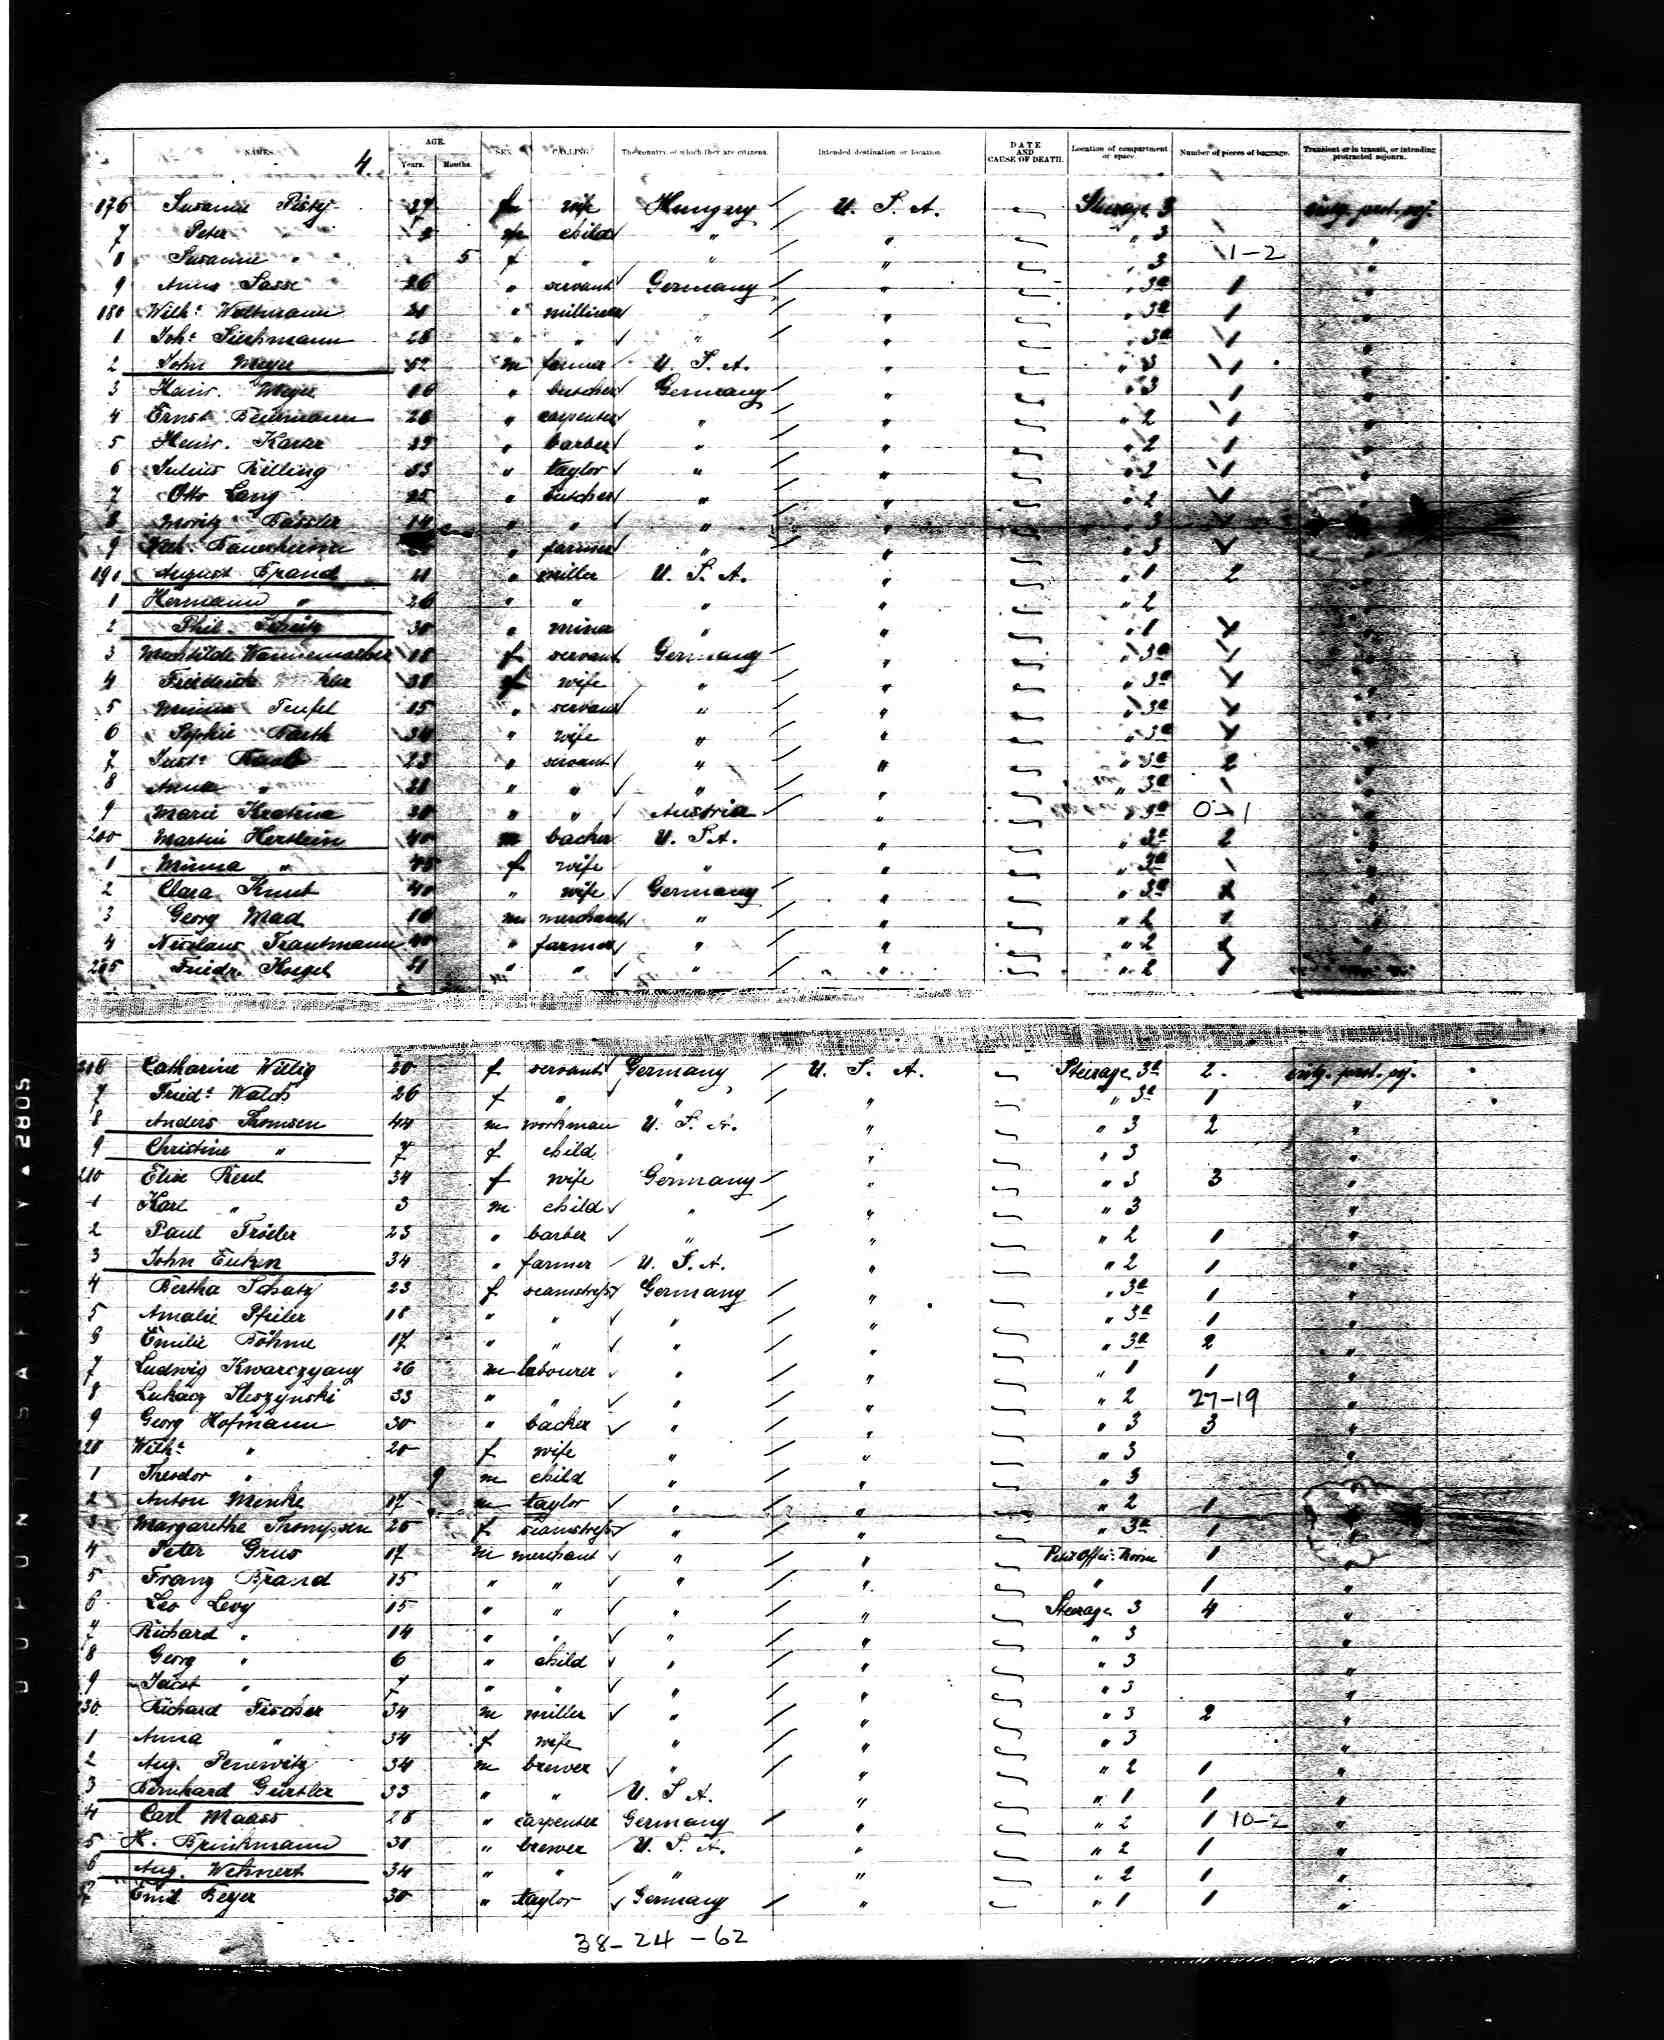 NAMES. 4. AGE. Years. Months. SEX. CALLING. The country of which they are citizens. Intended destination or location. DATE AND CAUSE OF DEATH. Location of compartment or space. Number of pieces of baggage. Transient or in transit, or intending protracted sojourn.
176 Susanne 27 f wife Hungary / U. S. A. Steerage 3
7 Peter " child " / " " 3 "
8 Susanne " 5 f " " / " " 3 1-2 "
9 Anna Sasse 26 " servant Germany / " " 3a 1 "
180 Wilh. Woltmann 21 " milliner " / " " 3a 1 "
1 Joh. 28 " " " / " " 3a 1 "
2 John Meyer 52 m farmer U. S. A. " " 3 1 "
3 Heinr. Meyer 16 " butcher Germany / " " 3 1 "
4 Ernst 26 " carpenter " / " " 2 1 "
5 Heinr. Karar " barber " / " " 2 1 "
6 Julius Billing 33 " taylor " / " " 2 1 "
7 Otto Lang 25 " butcher " / " " 2 1 "
8 Moritz Bässler 14 " " " / " " 3 1 "
9 " farmer " / " " 3 1 "
190 August Brand " miller U. S. A. " " 1 2 "
1 Hermann " 26 " " " " " 2 "
2 Phil. 30 " miner " " " 1 1 "
3 Mechtilde Wannemacher 18 f servant Germany / " " 3a 1 "
4 38 f wife " " " 3a 1 "
5 Minna Teufel 15 " servant " " " 3a 1 "
6 Sophie Barth 34 " wife " " " 3a 1 "
7 Just. 23 " servant " / " " 3a 2 "
8 Anna " 21 " " " / " " 3a "
9 Marie Kratina 30 " " Austria / " " 3a 0-1 "
200 Martin Hertlein 40 m backer U. S. A. " " 3a 2 "
1 Minna " 45 f wife " " " 3a "
2 Clara Knut 40 " wife Germany / " " 3a "
3 Georg Mad 16 m merchant " / " " 2 1 "
4 Nicolaus Trautmann 40 " farmer " / " " 2 "
205 Friedr. Kugel " " " / " " 2 1
206 Catharine Willig 20 f servant Germany / U. S. A. Steerage 3a 2.
7 Fried. Walch 26 f " " / " " 3a 1 "
8 Anders Thomsen 44 m workman U. S. A. " " 3 2 "
9 Christine " 7 f child " " " 3 "
210 Elise Reul 34 f wife Germany / " " 3 3 "
1 Karl " 3 m child " / " " 3 "
2 Paul Tröder 23 " barber " / " " 2 1 "
3 John Euken 34 " farmer U. S. A. " " 2 1 "
4 Bertha Schatz 23 f seamstress Germany / " " 3a 1 "
5 Amalie Pfieler 18 " " " / " " 3a 1 "
6 Emilie Böhme 17 " " " / " " 3a 2 "
7 Ludwig Kwarczyany 26 m labourer " / " " 1 1 "
8 Lukacz Sleszynski 33 " " " / " " 2 27-19 "
9 Georg Hofmann 30 " backer " / " " 3 3 "
220 Wilh. " 20 f wife " / " " 3 "
1 Theodor " 9 m child " / " " 3
2 Anton Menke 17 m taylor " / " " 2 1 "
3 Margarethe Thompsen 25 f seamstress " / " " 3a 1 "
4 Peter Grus 17 m merchant " / " 1
5 Franz Brand 15 " " " / " " 1 "
6 Leo Levy 15 " " " / " Steerage 3 4 "
7 Richard " 14 " " " / " " 3 "
8 Georg " 6 " child " / " " 3 "
9 Jacob " 7 " " " / " " 3 "
230 Richard Fischer 34 m miller " / " " 3 2 "
1 Anna " 34 f wife " / " " 3 "
2 Aug. Penewitz 34 m brewer " / " " 2 1 "
3 Bernhard Gürtler 33 " " U. S. A. " " 1 1 "
4 Carl Maass 28 " carpenter Germany / " " 2 1 10-2 "
5 H. Brinkmann 31 " brewer U. S. A. " " 2 1 "
6 Aug. Wehnert 34 " " " " " 2 1 "
7 Emil Beyer 30 " taylor Germany / " " 1 1 "
38-24-62
DUPONT SAFETY 2805